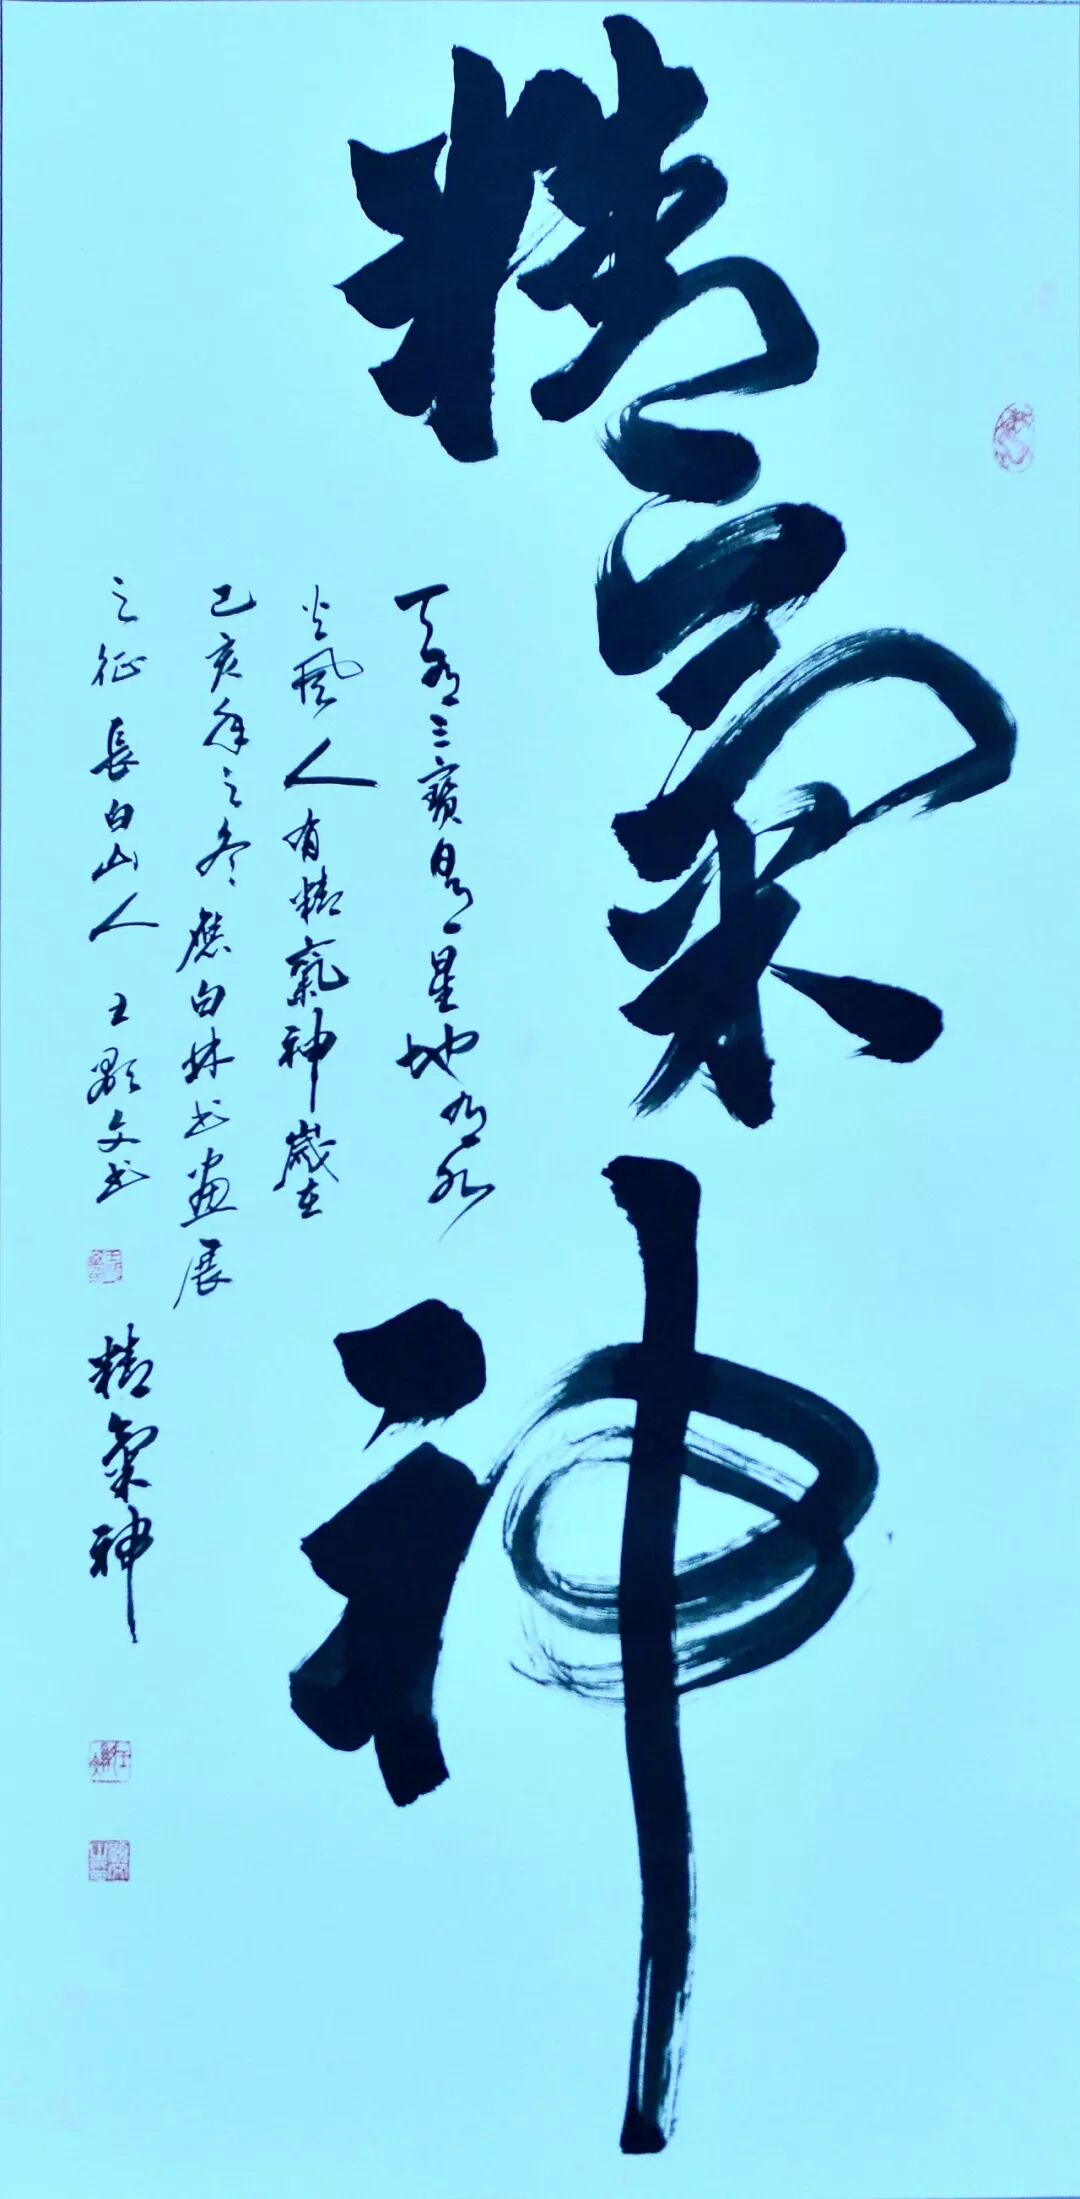 精氣神
天有三寶日月星地有水
火風人有精氣神歲在
己亥年之冬應白林書畫展
之征長白山人王顯文書
精氣神